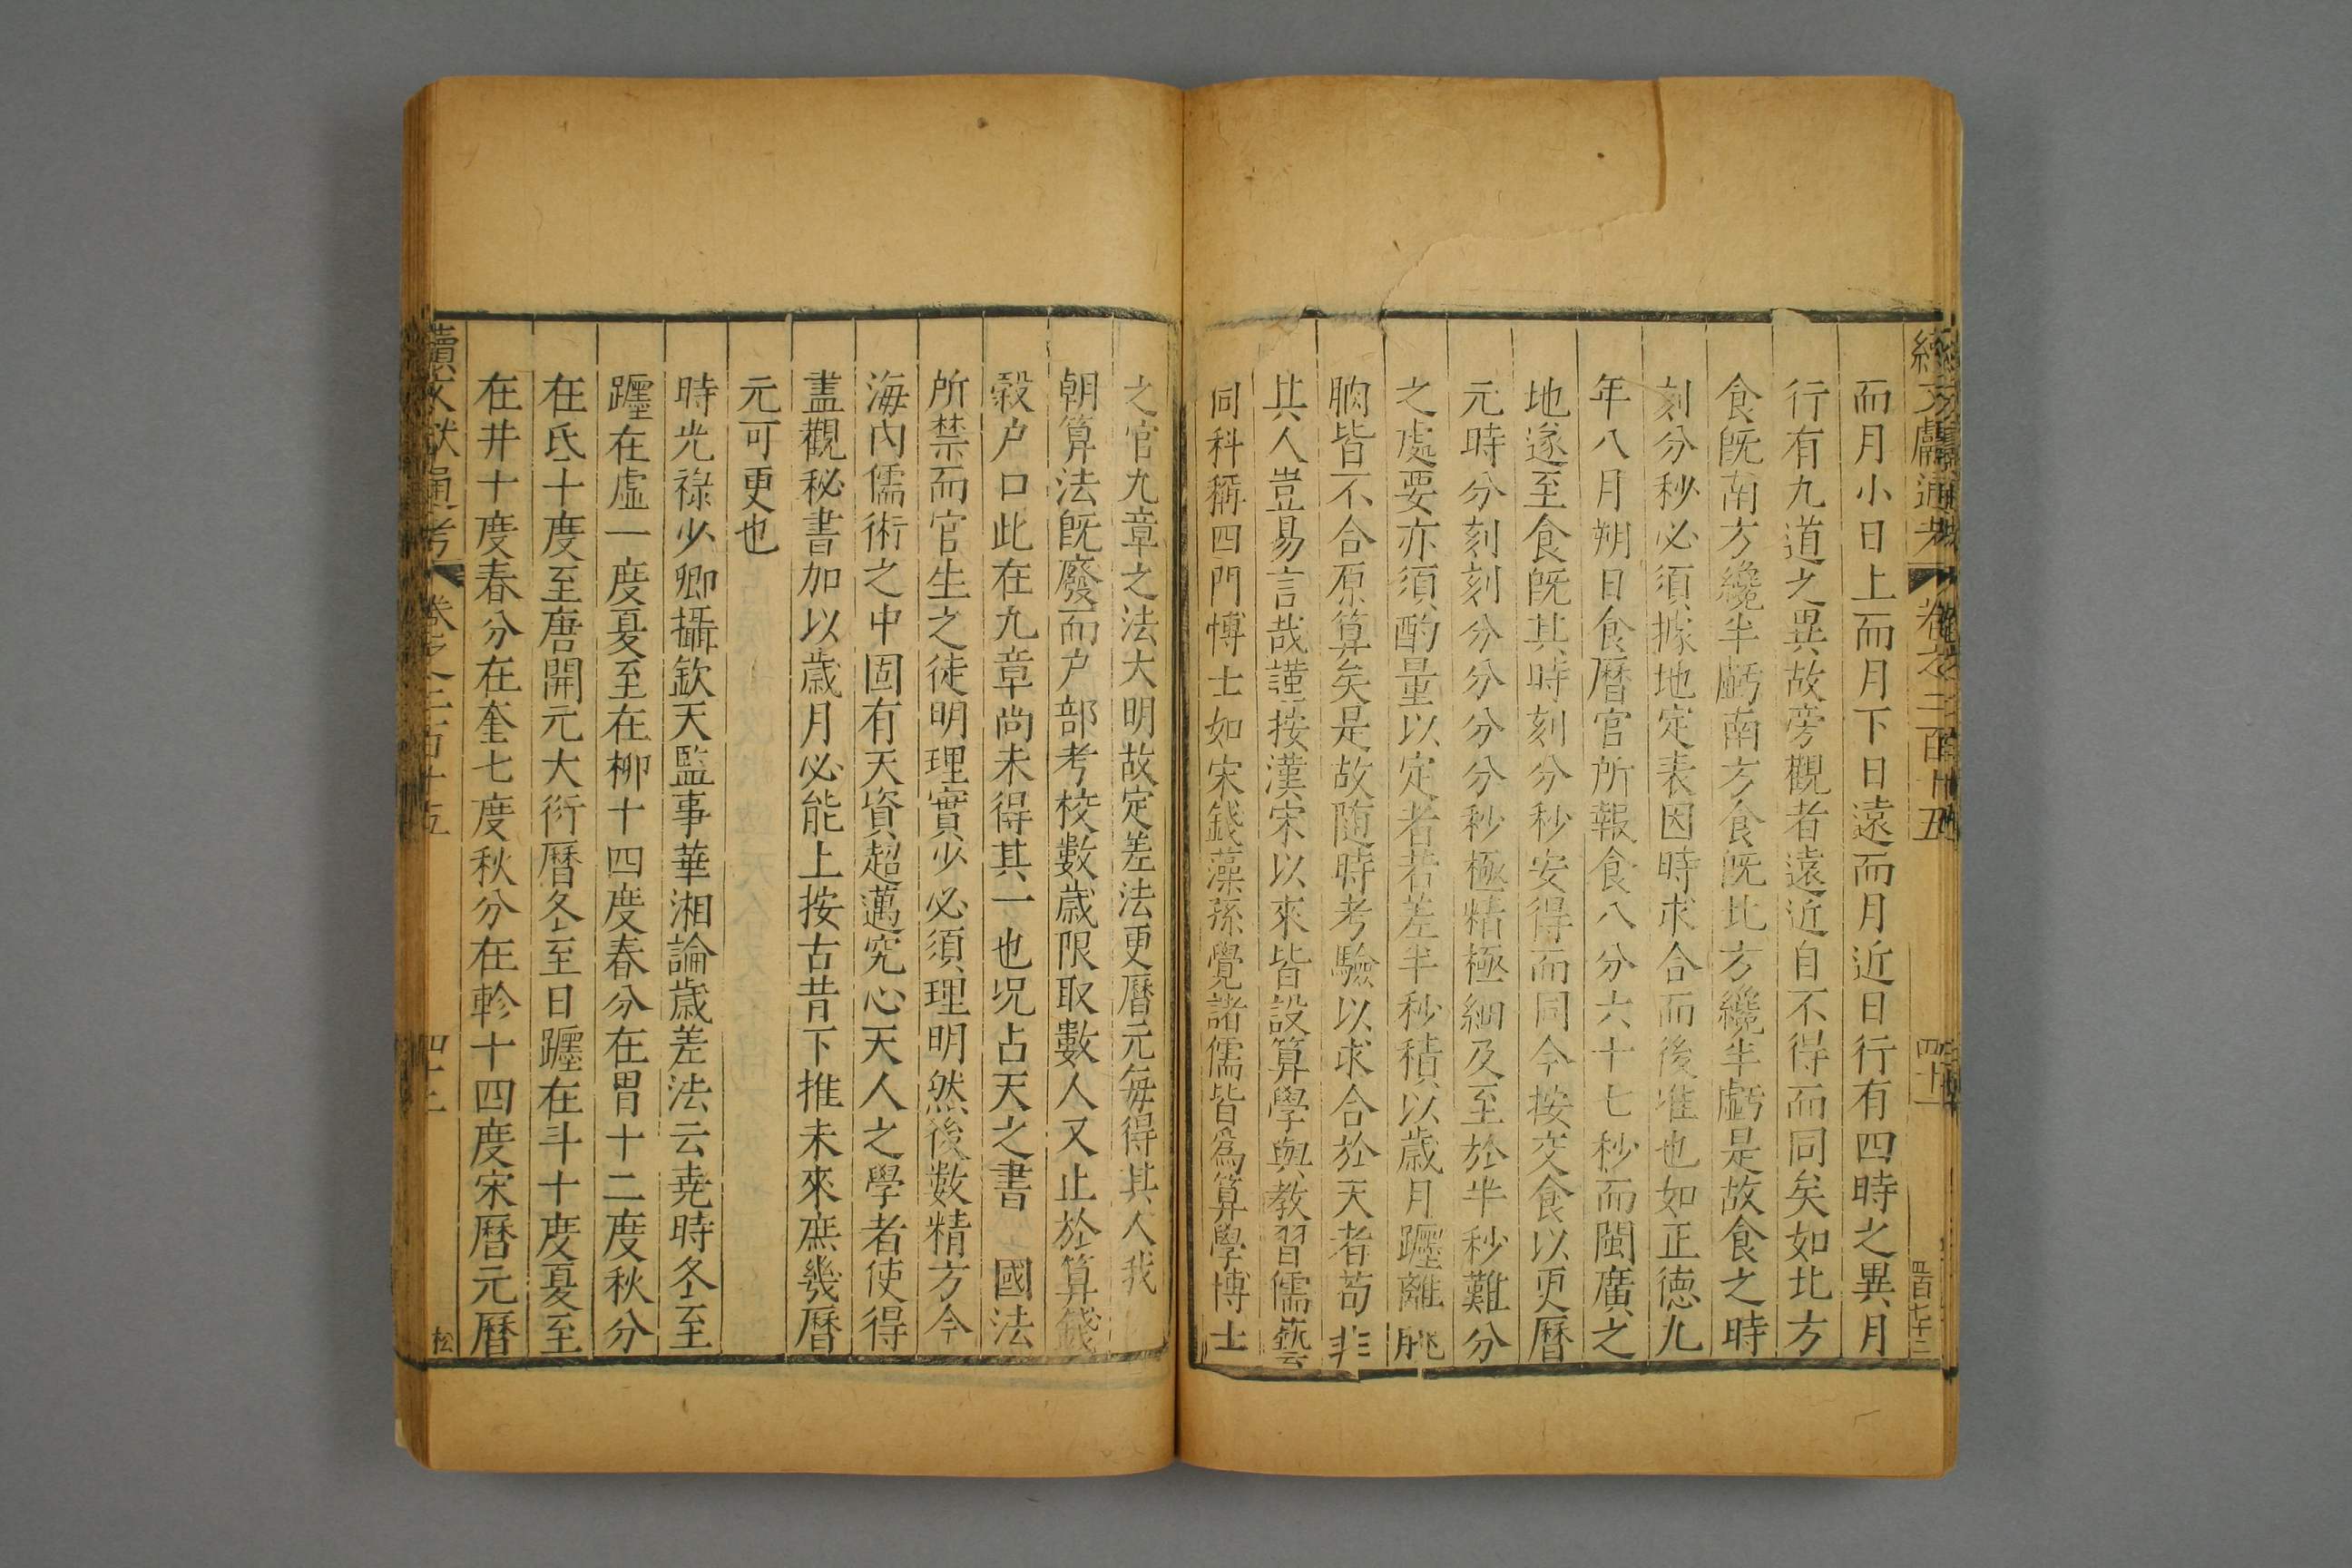 續文獻通考 卷之二百十五 四十一
而月小日上而月下日遠而月近日行有四時之異月
行有九道之異故旁觀者遠近自不得而同矣如北方
食旣南方纔半虧南方食旣北方纔半虧是故食之時
刻分秒必須據地定表因時求合而後准也如正德九
年八月朔日食曆官所報食八分六十七秒而閩廣之
地遂至食旣其時刻分秒安得而同今按交食以更曆
元時分刻刻分分分分秒極精極細及至於半秒難分
之處要亦須酌量以定者若差半秒積以歲月躔離朓
朒皆不合原算矣是故隨時考驗以求合於天者苟非
其人豈易言哉謹按漢宋以來皆設算學與教習儒藝
同科稱四門博士如宋錢藻孫覺諸儒皆爲算學博士
之官九章之法大明故定差法更曆元每得其人我
朝算法旣廢而户部考校數歲限取數人又止於算錢
穀户口此在九章尚未得其一也况占天之書 國法
所禁而官生之徒明理實少必須理明然後數精方今
海內儒術之中固有天資超邁究心天人之學者使得
盡觀秘書加以歲月必能上按古昔下推未來庶幾曆
元可更也
時光祿少卿攝欽天監事華湘論歲差法云堯時冬至
躔在虛一度夏至在柳十四度春分在胃十二度秋分
在氐十度至唐開元大衍曆冬至日躔在斗十度夏至
在井十度春分在奎七度秋分在軫十四度宋曆元曆
續文獻通考 卷之二百十五
松